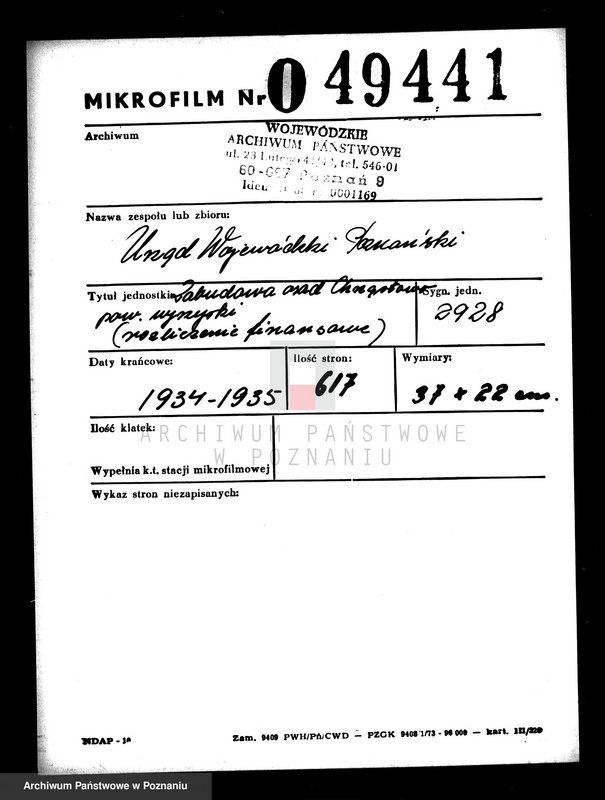 MIKROFILM Nr 0 49441
Archiwum
WOJEWÓDZKIE
ARCHIWUM PAŃSTWOWE
ul. 23 Lutego tel. 546-01
Poznań 9
0001169
Nazwa zespołu lub zbioru:
Urząd Wojewódzki Poznański
Tytuł jednostki: Zabudowa osad
pow. wyrzyski
(rozliczenie finansowe)
Sygn. jedn.
2928
Daty krańcowe:
1934-1935
Ilość stron:
617
Wymiary:
37 x 22 cm.
Ilość klatek:
Wypełnia k.t. stacji mikrofilmowej
ARCHIWUM PAŃSTWOWE
W POZNANIU
Wykaz stron niezapisanych:
NDAP - Zam. 9409 PWH/Pń/CWD — PZGK 9408 1/73 - 96 000 — kart. III/220
Archiwum Państwowe w Poznaniu